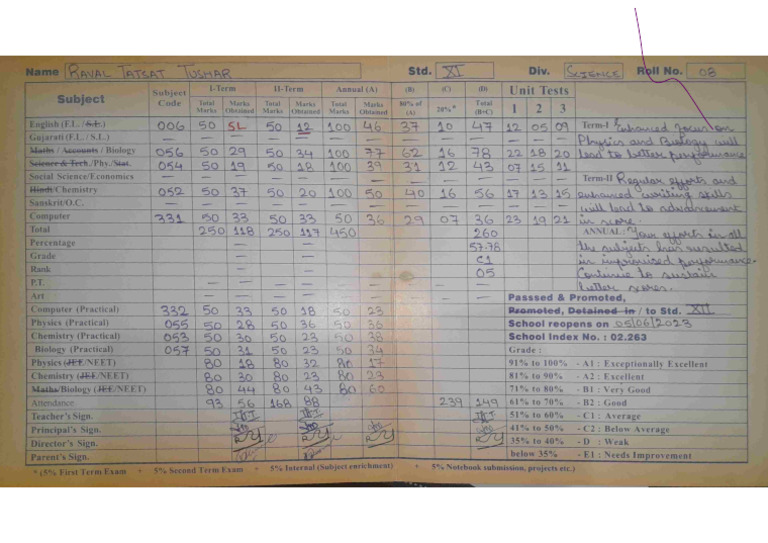 Name RAVAL TATSAT TUSHAR Std. XI Div. SCIENCE Roll No. 08
Subject Subject Code I-Term II-Term Annual (A) (B) (C) (D) Unit Tests
Total Marks Marks Obtained Total Marks Marks Obtained Total Marks Marks Obtained 80% of (A) 20%* Total (B+C) 1 2 3
English (F.L. / S.L.) 006 50 SL 50 12 100 46 37 10 47 12 05 09
Gujarati (F.L. / S.L.) — — — — — — — — — — — —
Maths / Accounts / Biology 056 50 29 50 34 100 77 62 16 78 22 18 20
Science & Tech./Phy./Stat. 054 50 19 50 18 100 39 31 12 43 07 15 11
Social Science/Economics — — — — — — — — — — — —
Hindi/Chemistry 052 50 37 50 20 100 50 40 16 56 17 13 15
Sanskrit/O.C. — — — — — — — — — — — —
Computer 331 50 33 50 33 50 36 29 07 36 23 19 21
Total 250 118 250 117 450 260
Percentage 57.78
Grade C1
Rank 05
P.T. — — — — — — —
Art — — — — — — —
Computer (Practical) 332 50 33 50 18 50 23
Physics (Practical) 055 50 28 50 36 50 36
Chemistry (Practical) 053 50 30 50 23 50 38
Biology (Practical) 057 50 31 50 23 50 34
Physics (JEE/NEET) 80 18 80 32 80 17
Chemistry (JEE/NEET) 80 30 80 23 80 23
Maths/Biology (JEE/NEET) 80 44 80 43 80 60
Attendance 93 56 168 88 239 149
Teacher's Sign.
Principal's Sign.
Director's Sign.
Parent's Sign.
* (5% First Term Exam + 5% Second Term Exam + 5% Internal (Subject enrichment) + 5% Notebook submission, projects etc.)
Term-I Enhanced focus on
Physics and Biology will
lead to better performance
Term-II Regular efforts and
enhanced writing skills
will lead to advancement
in score.
ANNUAL: Your efforts in all
the subjects has resulted
in improvised performance.
Continue to sustain
better scores.
Passsed & Promoted,
Promoted, Detained in / to Std. XII
School reopens on 05/06/2023
School Index No. : 02.263
Grade :
91% to 100% - A1 : Exceptionally Excellent
81% to 90% - A2 : Excellent
71% to 80% - B1 : Very Good
61% to 70% - B2 : Good
51% to 60% - C1 : Average
41% to 50% - C2 : Below Average
35% to 40% - D : Weak
below 35% - E1 : Needs Improvement